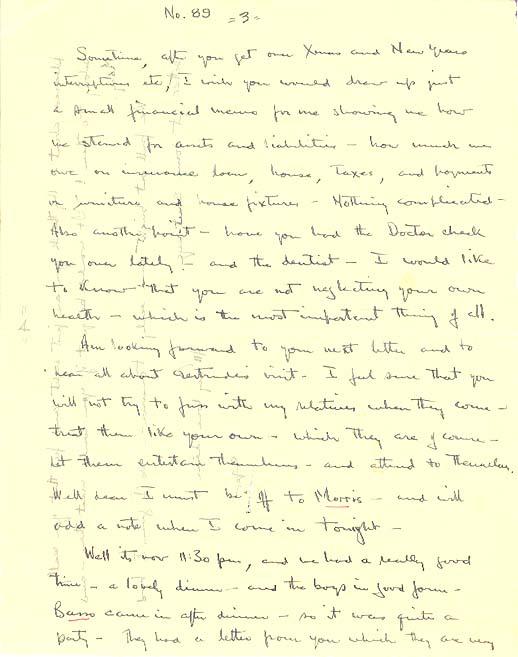 No. 89 =3=
Sometime, after you get over Xmas and New Years
interruptions etc, I wish you would draw up just
a small financial memo for me showing me how
we stand for assets and liabilities - how much we
owe on insurance loan, house, taxes, and payments
on furniture and house fixtures - Nothing complicated -
Also another point - have you had the Doctor check
you over lately - and the dentist - I would like
to know that you are not neglecting your own
health - which is the most important thing of all.
Am looking forward to your next letter and to
hear all about Gertrude's visit - I feel sure that you
will not try to fuss with my relatives when they come -
treat them like your own - which they are of course -
Let them entertain themselves - and attend to themselves.
Well dear I must be off to Morris - and will
add a note when I come in tonight -
Well its now 11:30 pm, and we had a really good
time - a lovely dinner - and the boys in good form -
Basso came in after dinner - so it was quite a
party - They had a letter from you which they are very